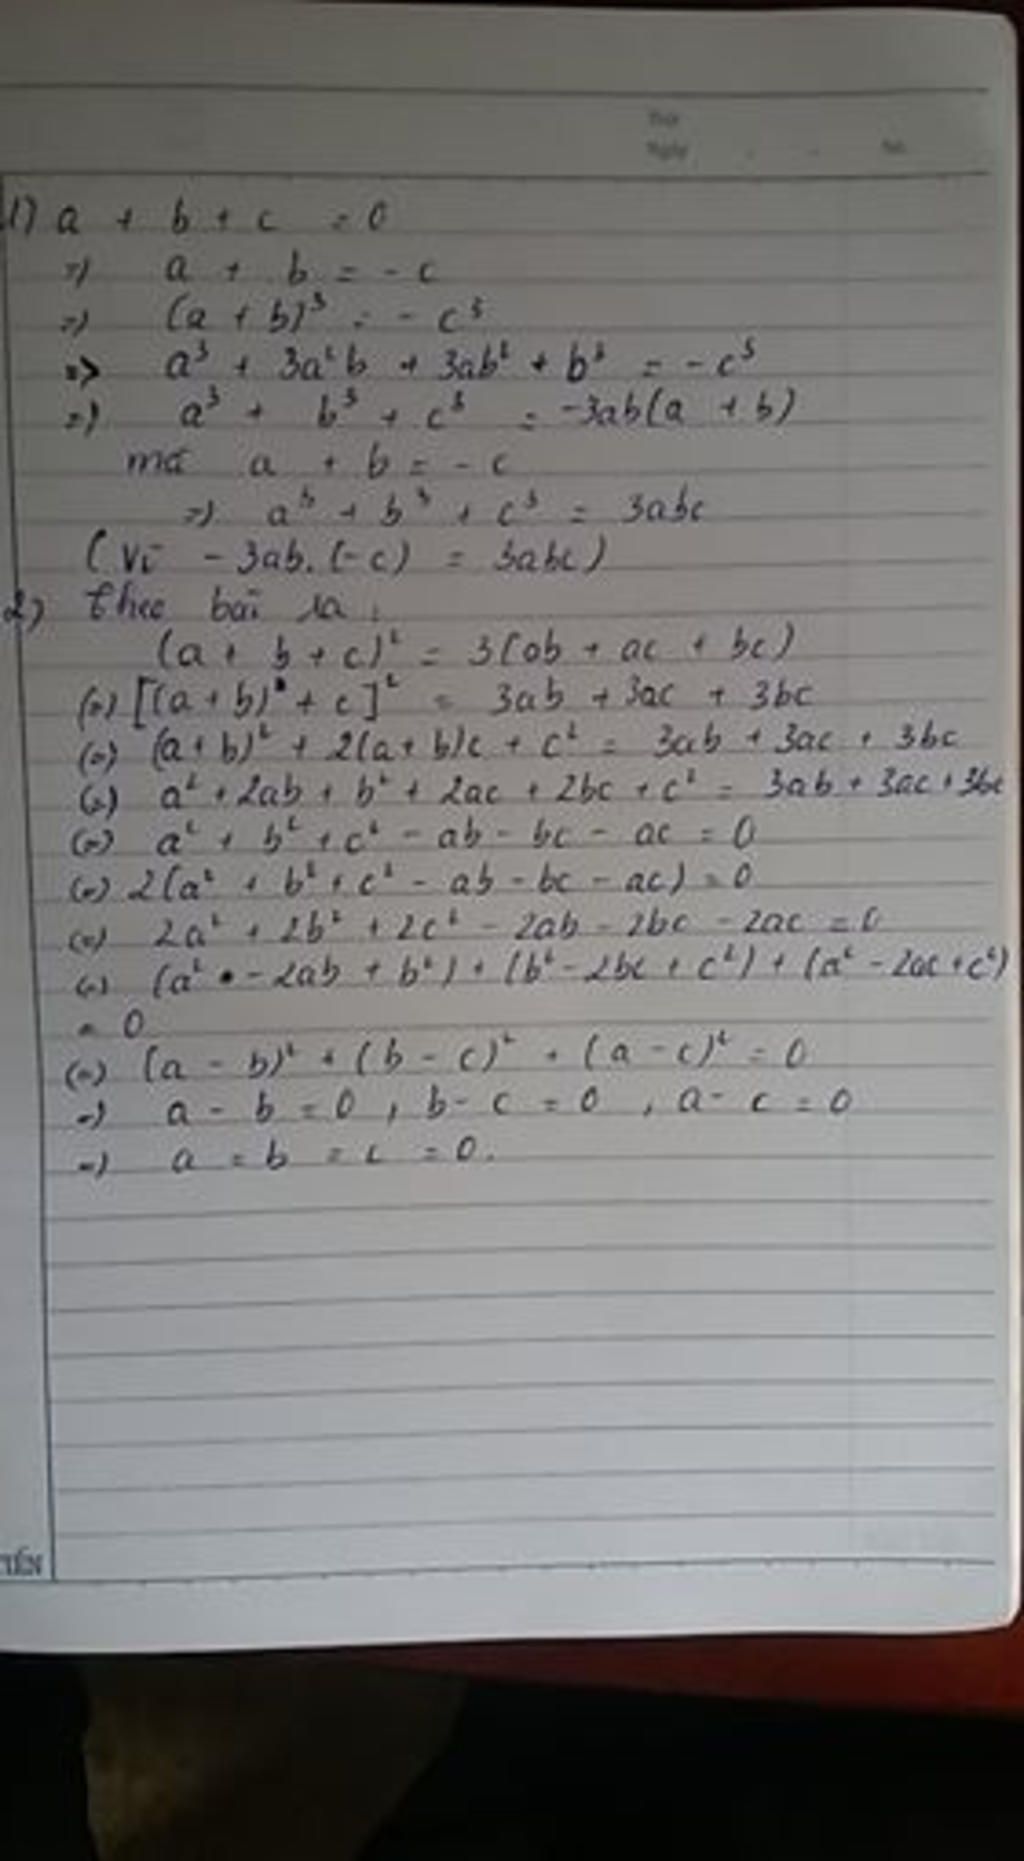 Thứ
Ngày . . No.
1) a + b + c = 0
=) a + b = - c
=) (a + b)³ = - c³
=> a³ + 3a²b + 3ab² + b³ = - c³
=) a³ + b³ + c³ = -3ab(a + b)
mà a + b = - c
=) a³ + b³ + c³ = 3abc
(Vì - 3ab. (-c) = 3abc)
2) theo bài ra:
(a + b + c)² = 3(ab + ac + bc)
(=) [(a + b) + c]² = 3ab + 3ac + 3bc
(=) (a + b)² + 2(a + b)c + c² = 3ab + 3ac + 3bc
(=) a² + 2ab + b² + 2ac + 2bc + c² = 3ab + 3ac + 3bc
(=) a² + b² + c² - ab - bc - ac = 0
(=) 2(a² + b² + c² - ab - bc - ac) = 0
(=) 2a² + 2b² + 2c² - 2ab - 2bc - 2ac = 0
(=) (a² - 2ab + b²) + (b² - 2bc + c²) + (a² - 2ac + c²)
= 0
(=) (a - b)² + (b - c)² + (a - c)² = 0
=) a - b = 0 , b - c = 0 , a - c = 0
=) a = b = c = 0.